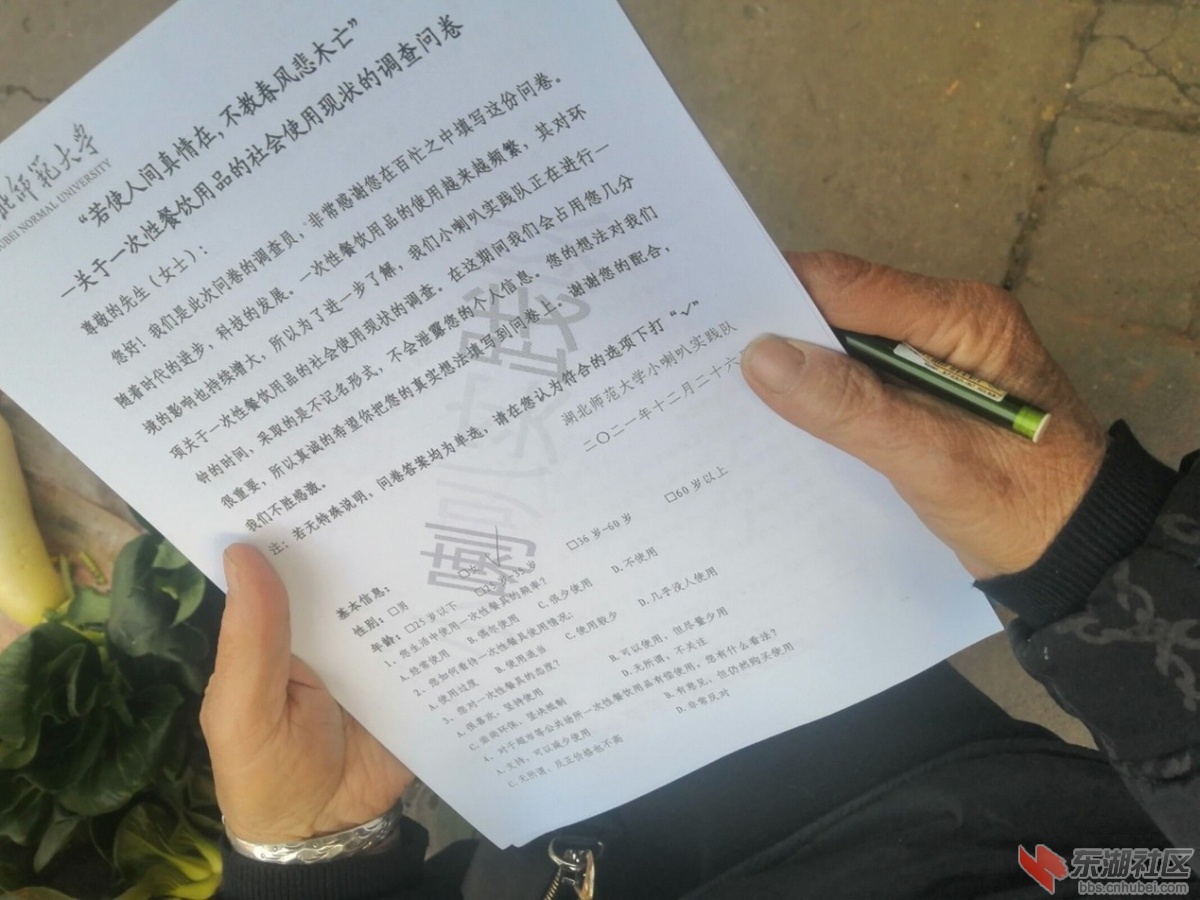 北师范大学
UBEI NORMAL UNIVERSITY
“若使人间真情在，不教春风悲木亡”
—关于一次性餐饮用品的社会使用现状的调查问卷
尊敬的先生（女士）：
您好！我们是此次问卷的调查员，非常感谢您在百忙之中填写这份问卷。
随着时代的进步，科技的发展。一次性餐饮用品的使用越来越频繁，其对环
境的影响也持续增大，所以为了进一步了解，我们小喇叭实践队正在进行一
项关于一次性餐饮用品的社会使用现状的调查。在这期间我们会占用您几分
钟的时间，采取的是不记名形式，不会泄露您的个人信息。您的想法对我们
很重要，所以真诚的希望你把您的真实想法填写到问卷上，谢谢您的配合，
我们不胜感激。
注：若无特殊说明，问卷答案均为单选，请在您认为符合的选项下打“✓”
湖北师范大学小喇叭实践队
二〇二一年十二月二十六
基本信息：
性别：□男 □女
年龄：□25 岁以下 □25 岁~35岁 □36 岁~60 岁 □60 岁以上
1、您生活中使用一次性餐具的频率？
A.经常使用 B.偶尔使用 C.很少使用 D.不使用
2、您如何看待一次性餐具使用情况：
A.使用过度 B.使用适当 C.使用较少 D.几乎没人使用
3、您对一次性餐具的态度？
A.很喜欢，坚持使用 B.可以使用，但尽量少用
C.崇尚环保，坚决抵制 D.无所谓，不关注
4、对于超市等公共场所一次性餐饮用品有偿使用，您有什么看法？
A.支持，可以减少使用 B.有意见，但仍然购买使用
C.无所谓，反正价格也不高 D.非常反对
喇叭实践队
东湖社区
bbs.cnhubei.com